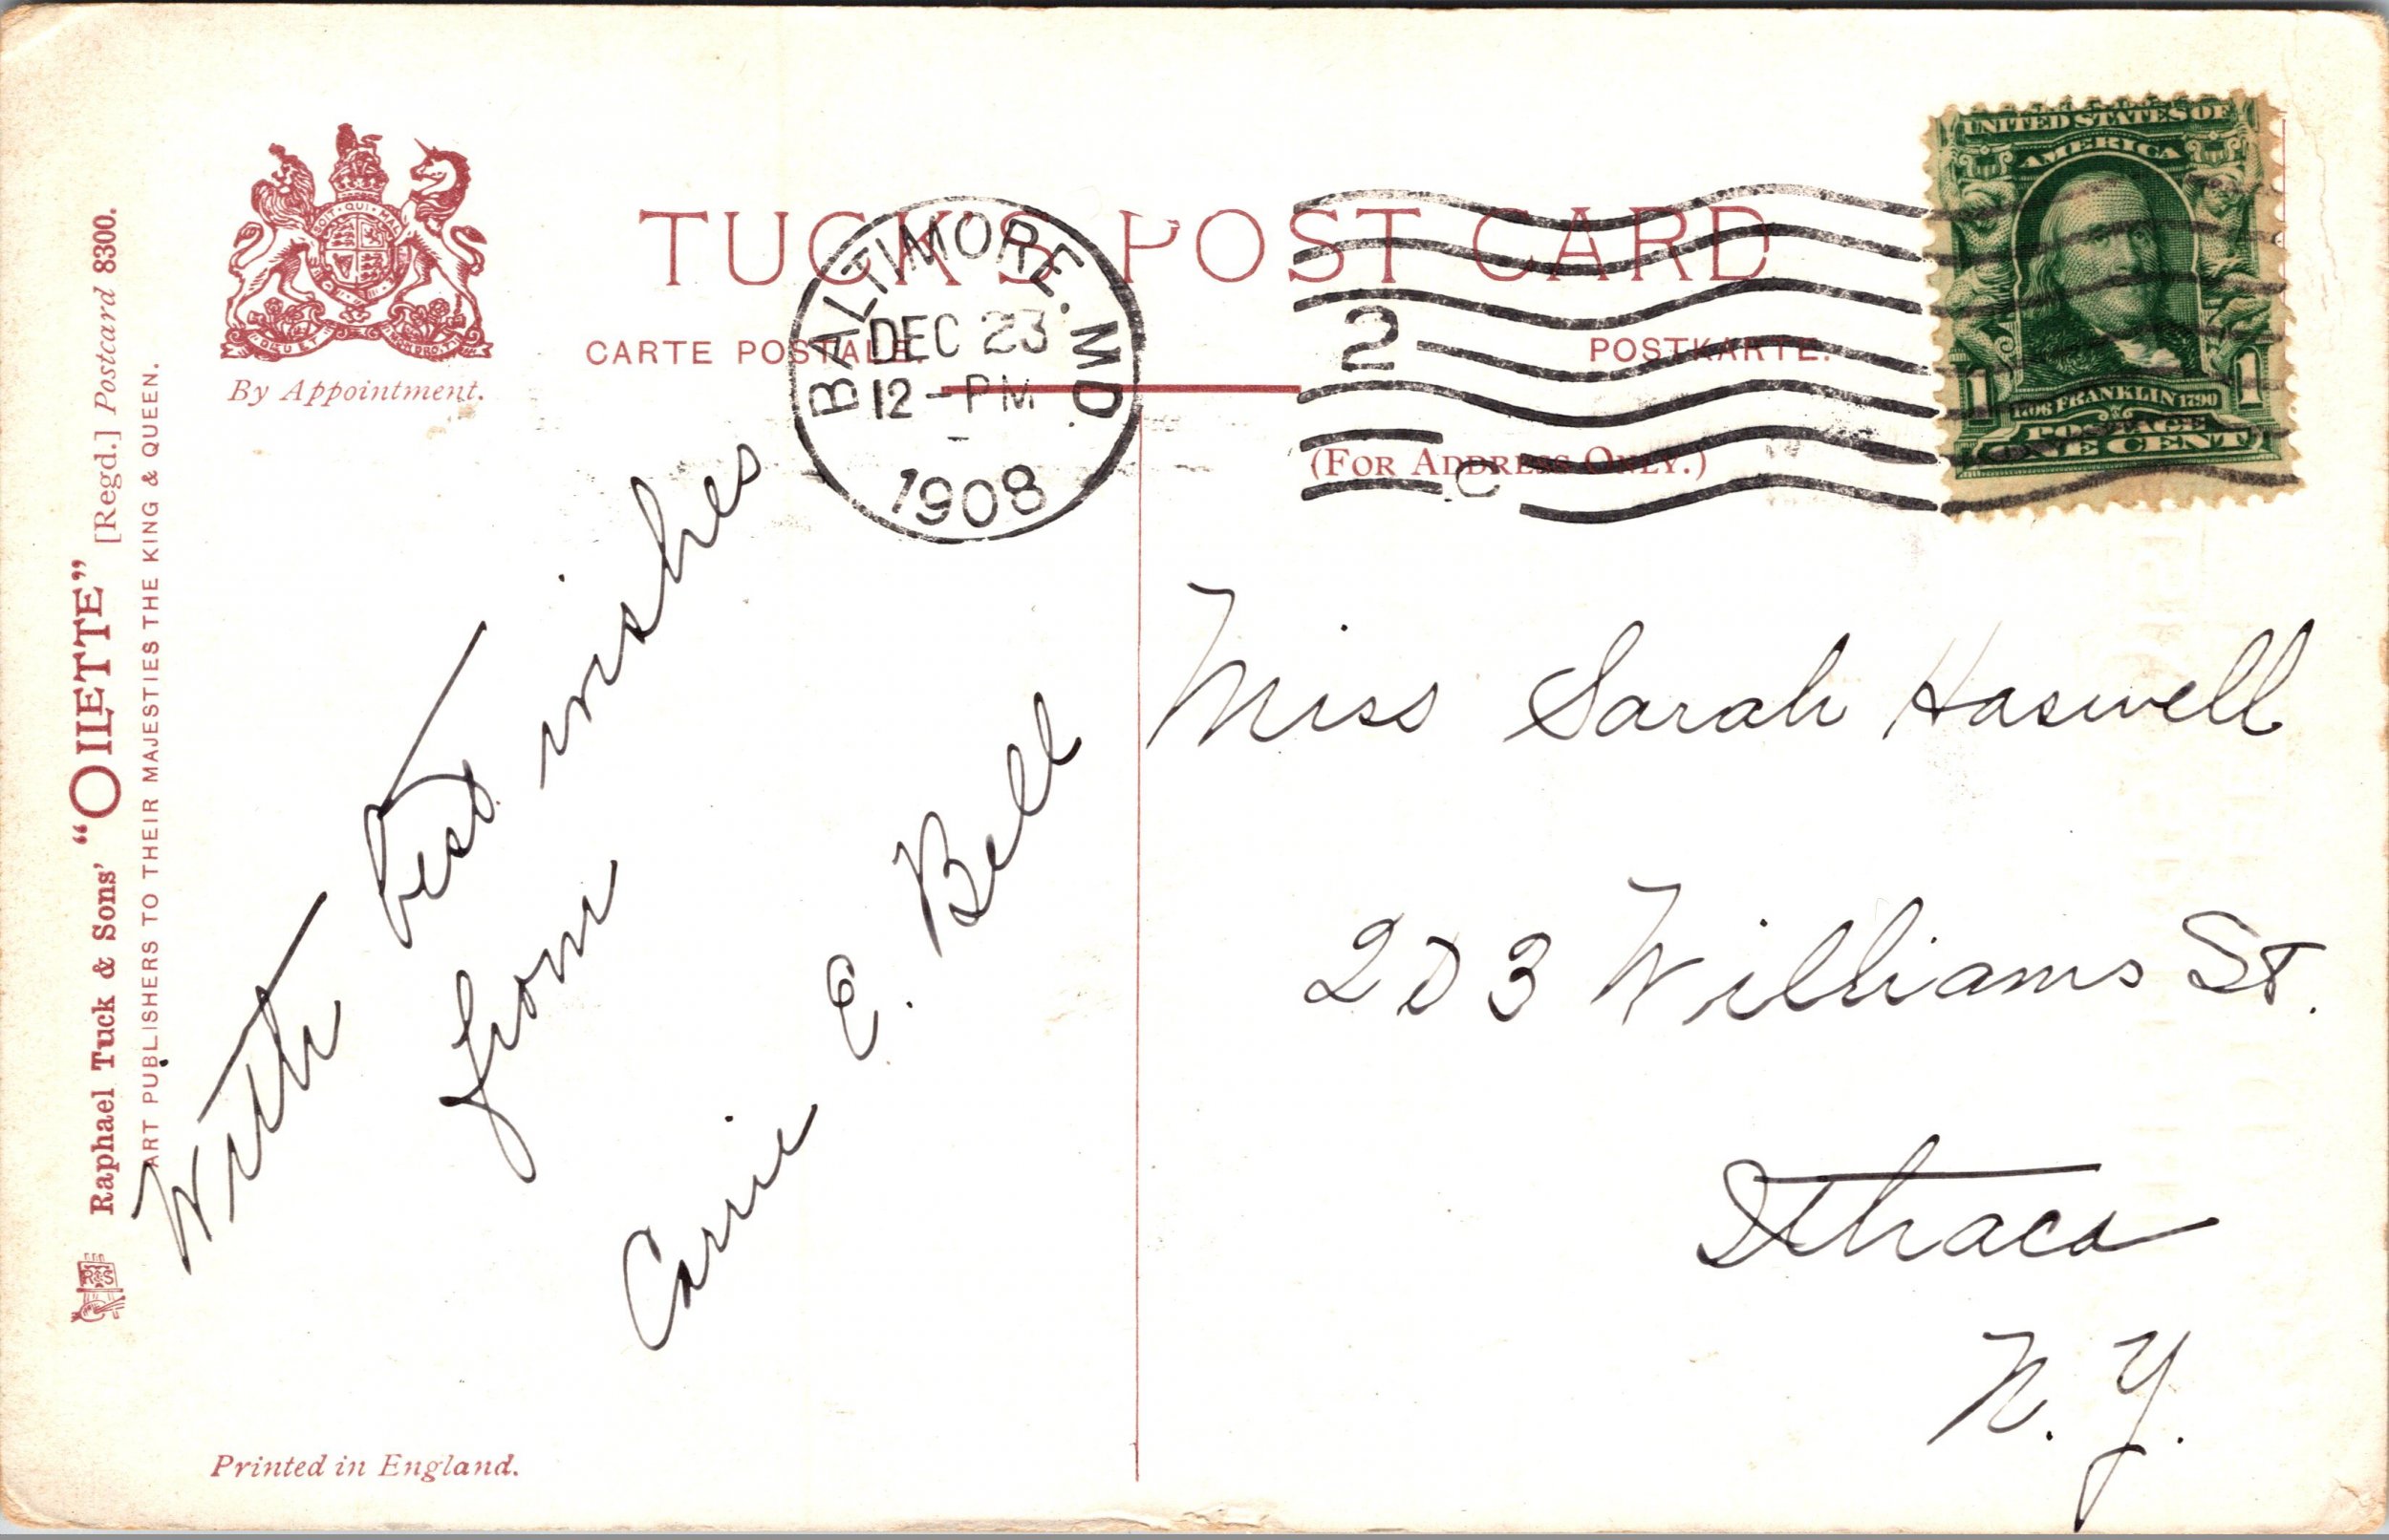 TUCK'S POST CARD
CARTE POSTALE.
POSTKARTE.
(FOR ADDRESS ONLY.)
By Appointment.
BALTIMORE. MD.
DEC 23
12-PM
1908
2
C
UNITED STATES OF
AMERICA
1 1
1706 FRANKLIN 1790
POSTAGE
ONE CENT
Raphael Tuck & Sons' “OILETTE” [Regd.] Postcard 8300.
ART PUBLISHERS TO THEIR MAJESTIES THE KING & QUEEN.
With best wishes
from
Carrie E. Bell
Miss Sarah Haswell
203 Williams St.
Ithaca
N.Y.
Printed in England.